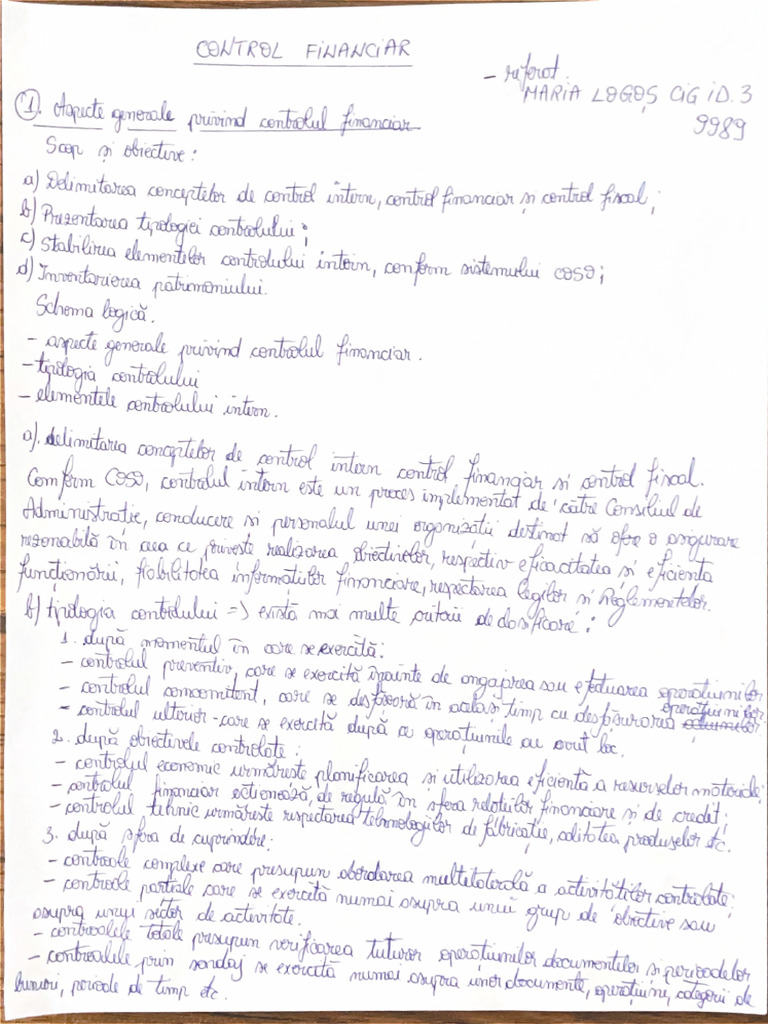 CONTROL FINANCIAR
- referat.
MARIA LOGOȘ CIG ID. 3
9989
1. Aspecte generale privind controlul financiar
Scop și obiective:
a) Delimitarea conceptelor de control intern, control financiar și control fiscal;
b) Prezentarea tipologiei controlului;
c) Stabilirea elementelor controlului intern, conform sistemului COSO;
d) Inventarierea patrimoniului.
Schema logică.
- aspecte generale privind controlul financiar.
- tipologia controlului
- elementele controlului intern.
a). delimitarea conceptelor de control intern control financiar si control fiscal.
Conform COSO, controlul intern este un proces implementat de către Consiliul de
Administratie, conducere si personalul unei organizații destinat să ofere o asigurare
rezonabilă în ceea ce priveste realizarea obiectivelor, respectiv eficacitatea si eficienta
funcționării, fiabilitatea informațiilor financiare, respectarea legilor si Reglementelor.
b) tipologia controlului => există mai multe criterii de clasificare:
1. după momentul în care se exercită:
- controlul preventiv, care se exercită înainte de angajarea sau efectuarea operațiunilor
- controlul concomitent, care se desfășoară în același timp cu desfășurarea operațiunilor
- controlul ulterior - care se exercită după ce operațiunile au avut loc.
2. după obiectivele controlate:
- controlul economic urmărește planificarea și utilizarea eficientă a resurselor materiale;
- controlul financiar acționează, de regulă în sfera relațiilor financiare si de credit;
- controlul tehnic urmărește respectarea tehnologiilor de fabricație, calitatea produselor etc.
3. după sfera de cuprindere:
- controale complexe care presupun abordarea multilaterală a activităților controlate;
- controale parțiale care se exercită numai asupra unui grup de obiective sau
asupra unui sector de activitate.
- controalele totale presupun verificarea tuturor operațiunilor documentelor si perioadelor
- controalele prin sondaj se exercită numai asupra unor documente, operațiuni, categorii de
bunuri, perioade de timp etc.